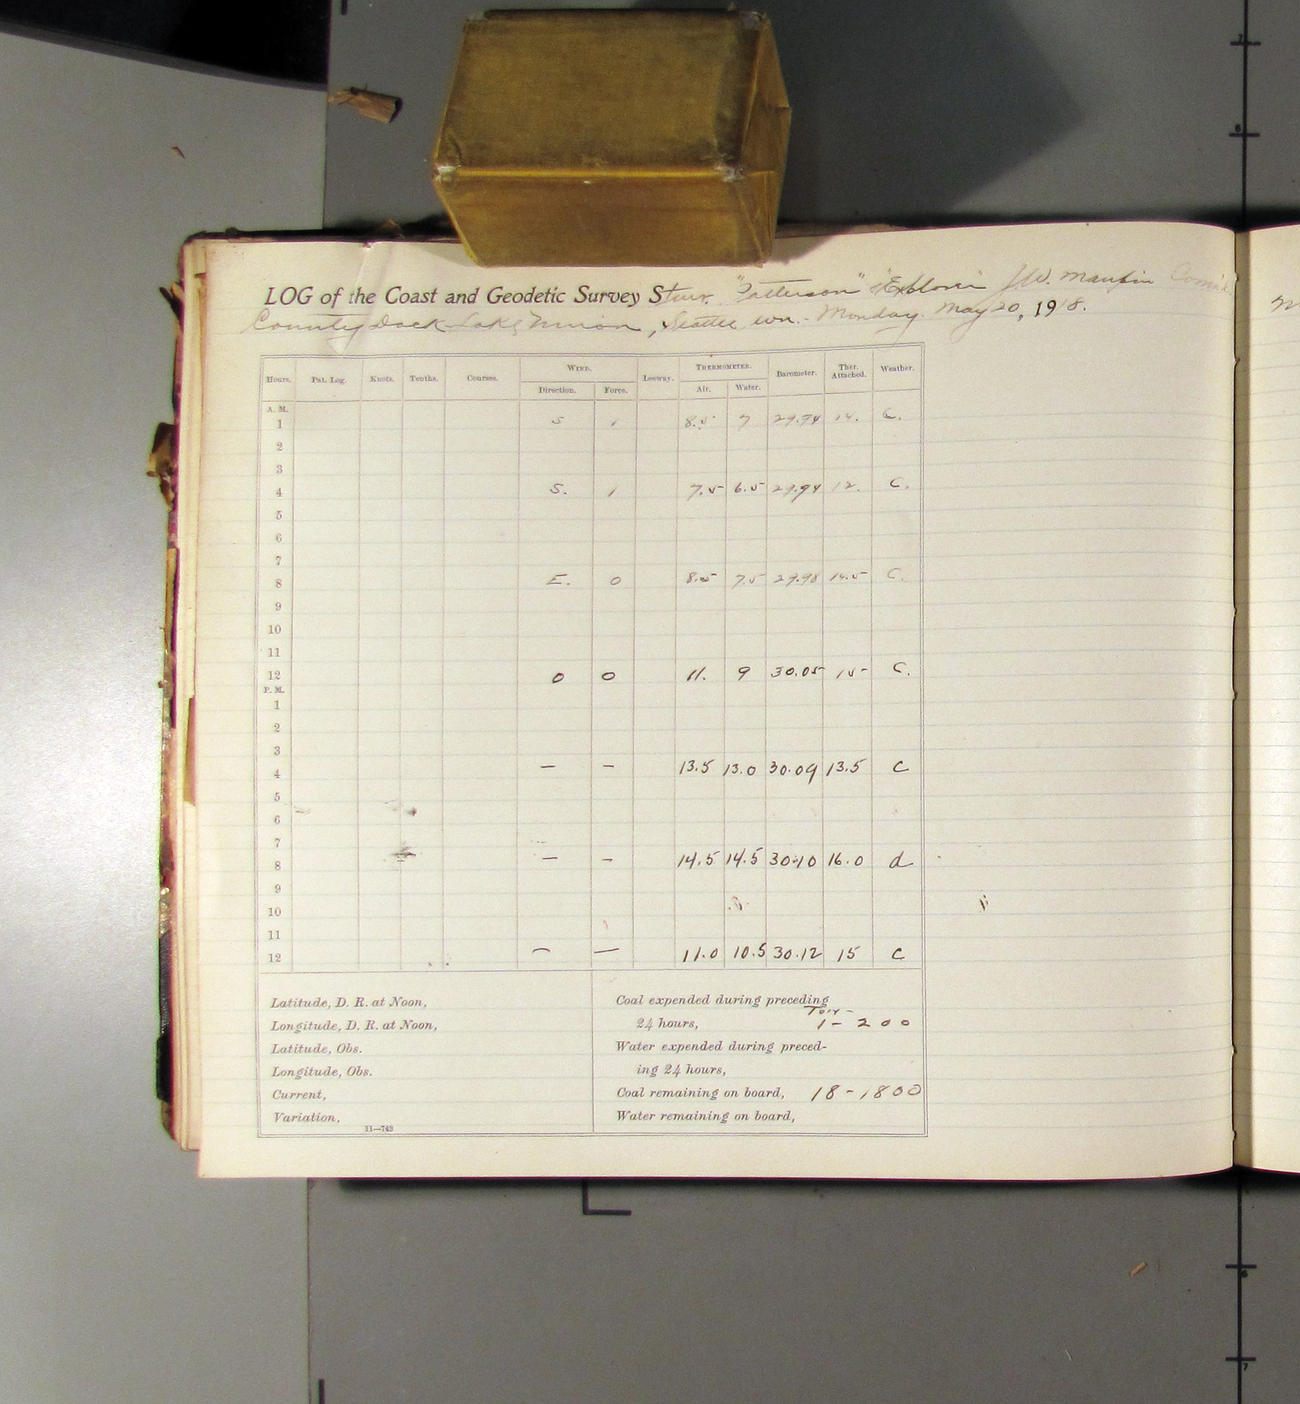 LOG of the Coast and Geodetic Survey Stmr. "Patterson" & "Explorer" J.W. Maupin Com'd
County Dock Lake Union, Seattle Wn. - Monday May 20, 1918.
Hours. Pat. Log. Knots. Tenths. Courses. WIND. Leeway. THERMOMETER. Barometer. Ther. Attached. Weather.
Direction. Force. Air. Water.
A. M.
1 S 1 8.5 7 29.94 14. C.
2
3
4 S. 1 7.5 6.5 29.94 12. C.
5
6
7
8 E. 0 8.5 7.5 29.98 14.5 C.
9
10
11
12 0 0 11. 9 30.05 15 C.
P. M.
1
2
3
4 — — 13.5 13.0 30.09 13.5 C
5
6
7
8 — — 14.5 14.5 30.10 16.0 d
9
10
11
12 — — 11.0 10.5 30.12 15 C
Latitude, D. R. at Noon,
Longitude, D. R. at Noon,
Latitude, Obs.
Longitude, Obs.
Current,
Variation,
11—743
Coal expended during preceding
24 hours, 1 - 200
Water expended during preced-
ing 24 hours,
Coal remaining on board, 18 - 1800
Water remaining on board,